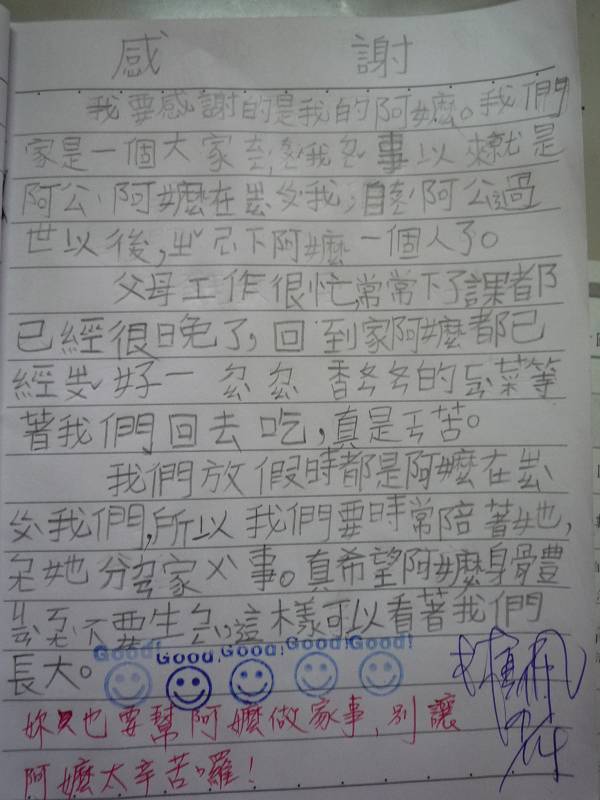 感 謝
我要感謝的是我的阿嬤。我們
家是一個大家 我 事以來就是
阿公、阿嬤在 我,自 阿公過
世以後, 下阿嬤一個人了。
父母工作很忙,常常下了課都
已經很晚了,回到家阿嬤都已
經 好一 香 的 菜等
著我們回去吃,真是 苦。
我們放假時都是阿嬤在
我們,所以我們要時常陪著她,
她分 家ㄨˋ事。真希望阿嬤身體
不要生 ,這樣可以看著我們
長大。
Good! Good! Good! Good! Good!
妳也要幫阿嬤做家事,別讓
阿嬤太辛苦囉!